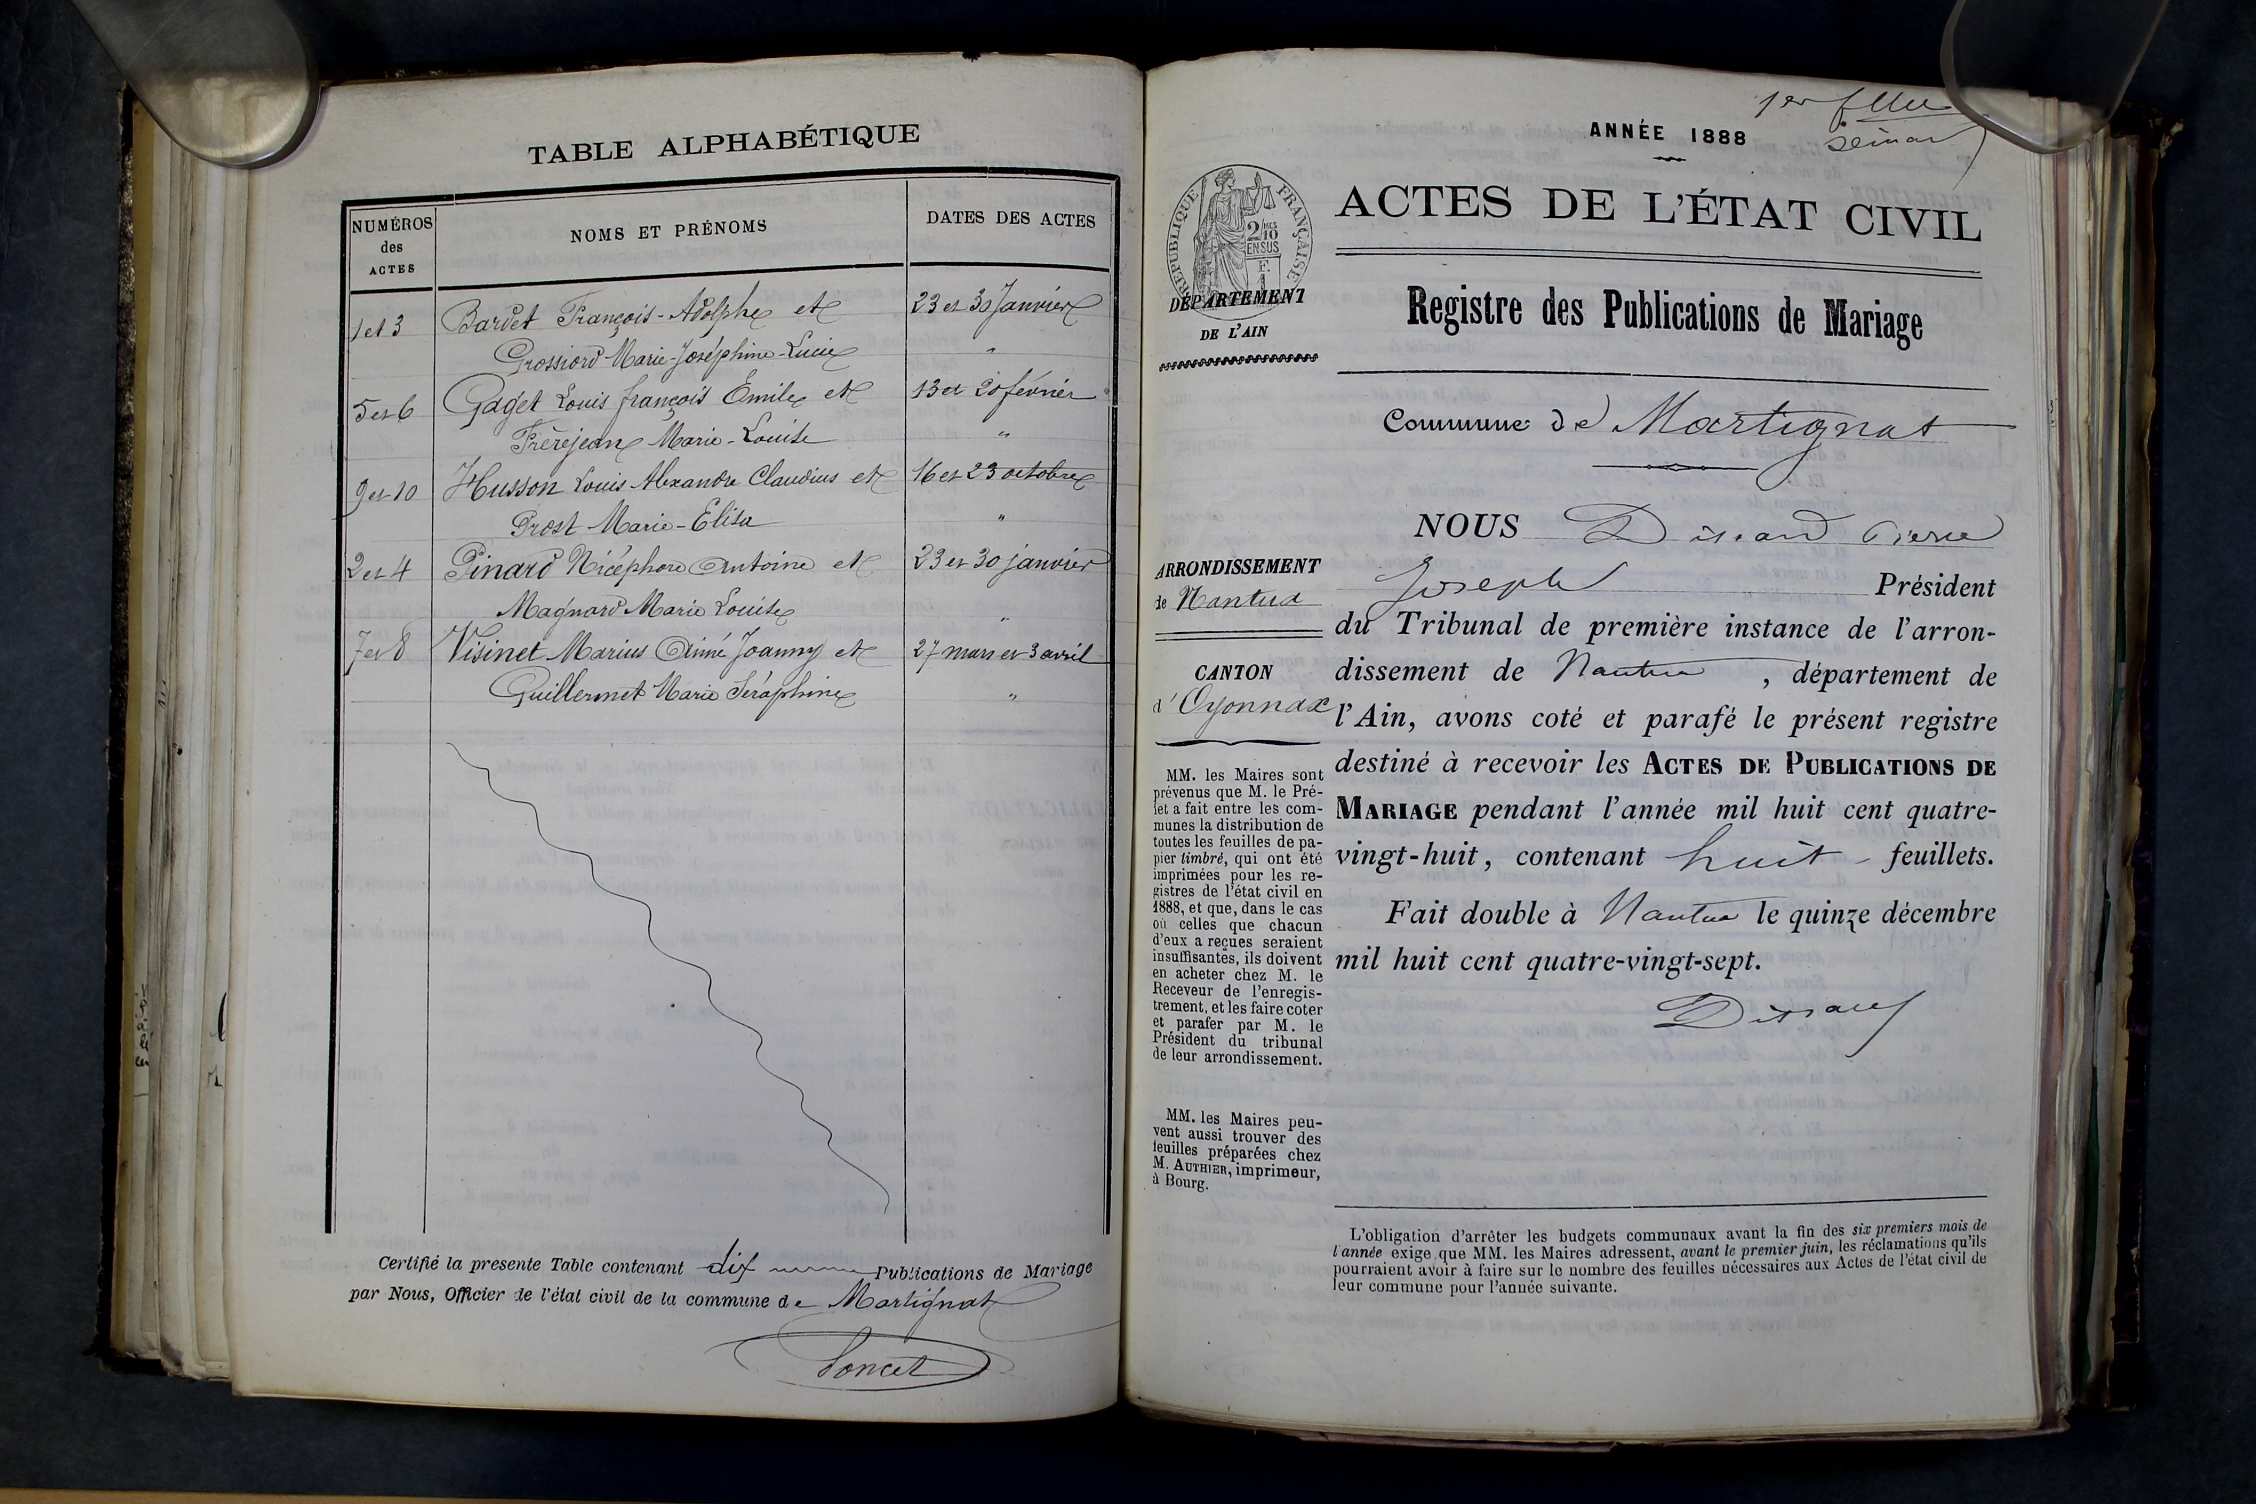 TABLE ALPHABÉTIQUE
NUMÉROS
des
ACTES
NOMS ET PRÉNOMS
DATES DES ACTES
1 et 3 Bardet François-Adolphe et 23 et 30 Janvier
Grossiord Marie-Joséphine-Lucie "
5 et 6 Gaget Louis françois Emile et 13 et 20 février
Frèrejean Marie-Louise "
9 et 10 Husson Louis Alexandre Claudius et 16 et 23 octobre
Prost Marie-Elisa "
2 et 4 Pinard Nicéphore Antoine et 23 et 30 janvier
Magnard Marie Louise "
7 et 8 Visinet Marius Aimé Joanny et 27 mars et 3 avril
Guillermet Marie Séraphine "
Certifié la presente Table contenant dix Publications de Mariage
par Nous, Officier de l'état civil de la commune de Martignat
Poncet
1er
ANNÉE 1888
RÉPUBLIQUE FRANÇAISE
2/10
EN SUS
DÉPARTEMENT
DE L'AIN
ACTES DE L'ÉTAT CIVIL
Registre des Publications de Mariage
Commune de Martignat
ARRONDISSEMENT
de Nantua
CANTON
d'Oyonnax
MM. les Maires sont
prévenus que M. le Pré-
fet a fait entre les com-
munes la distribution de
toutes les feuilles de pa-
pier timbré, qui ont été
imprimées pour les re-
gistres de l'état civil en
1888, et que, dans le cas
où celles que chacun
d'eux a reçues seraient
insuffisantes, ils doivent
en acheter chez M. le
Receveur de l'enregis-
trement, et les faire coter
et parafer par M. le
Président du tribunal
de leur arrondissement.
MM. les Maires peu-
vent aussi trouver des
feuilles préparées chez
M. AUTHIER, imprimeur,
à Bourg.
NOUS Dissard Pierre
Joseph Président
du Tribunal de première instance de l'arron-
dissement de Nantua, département de
l'Ain, avons coté et parafé le présent registre
destiné à recevoir les ACTES DE PUBLICATIONS DE
MARIAGE pendant l'année mil huit cent quatre-
vingt-huit, contenant huit feuillets.
Fait double à Nantua le quinze décembre
mil huit cent quatre-vingt-sept.
Dissard
L'obligation d'arrêter les budgets communaux avant la fin des six premiers mois de
l'année exige que MM. les Maires adressent, avant le premier juin, les réclamations qu'ils
pourraient avoir à faire sur le nombre des feuilles nécessaires aux Actes de l'état civil de
leur commune pour l'année suivante.